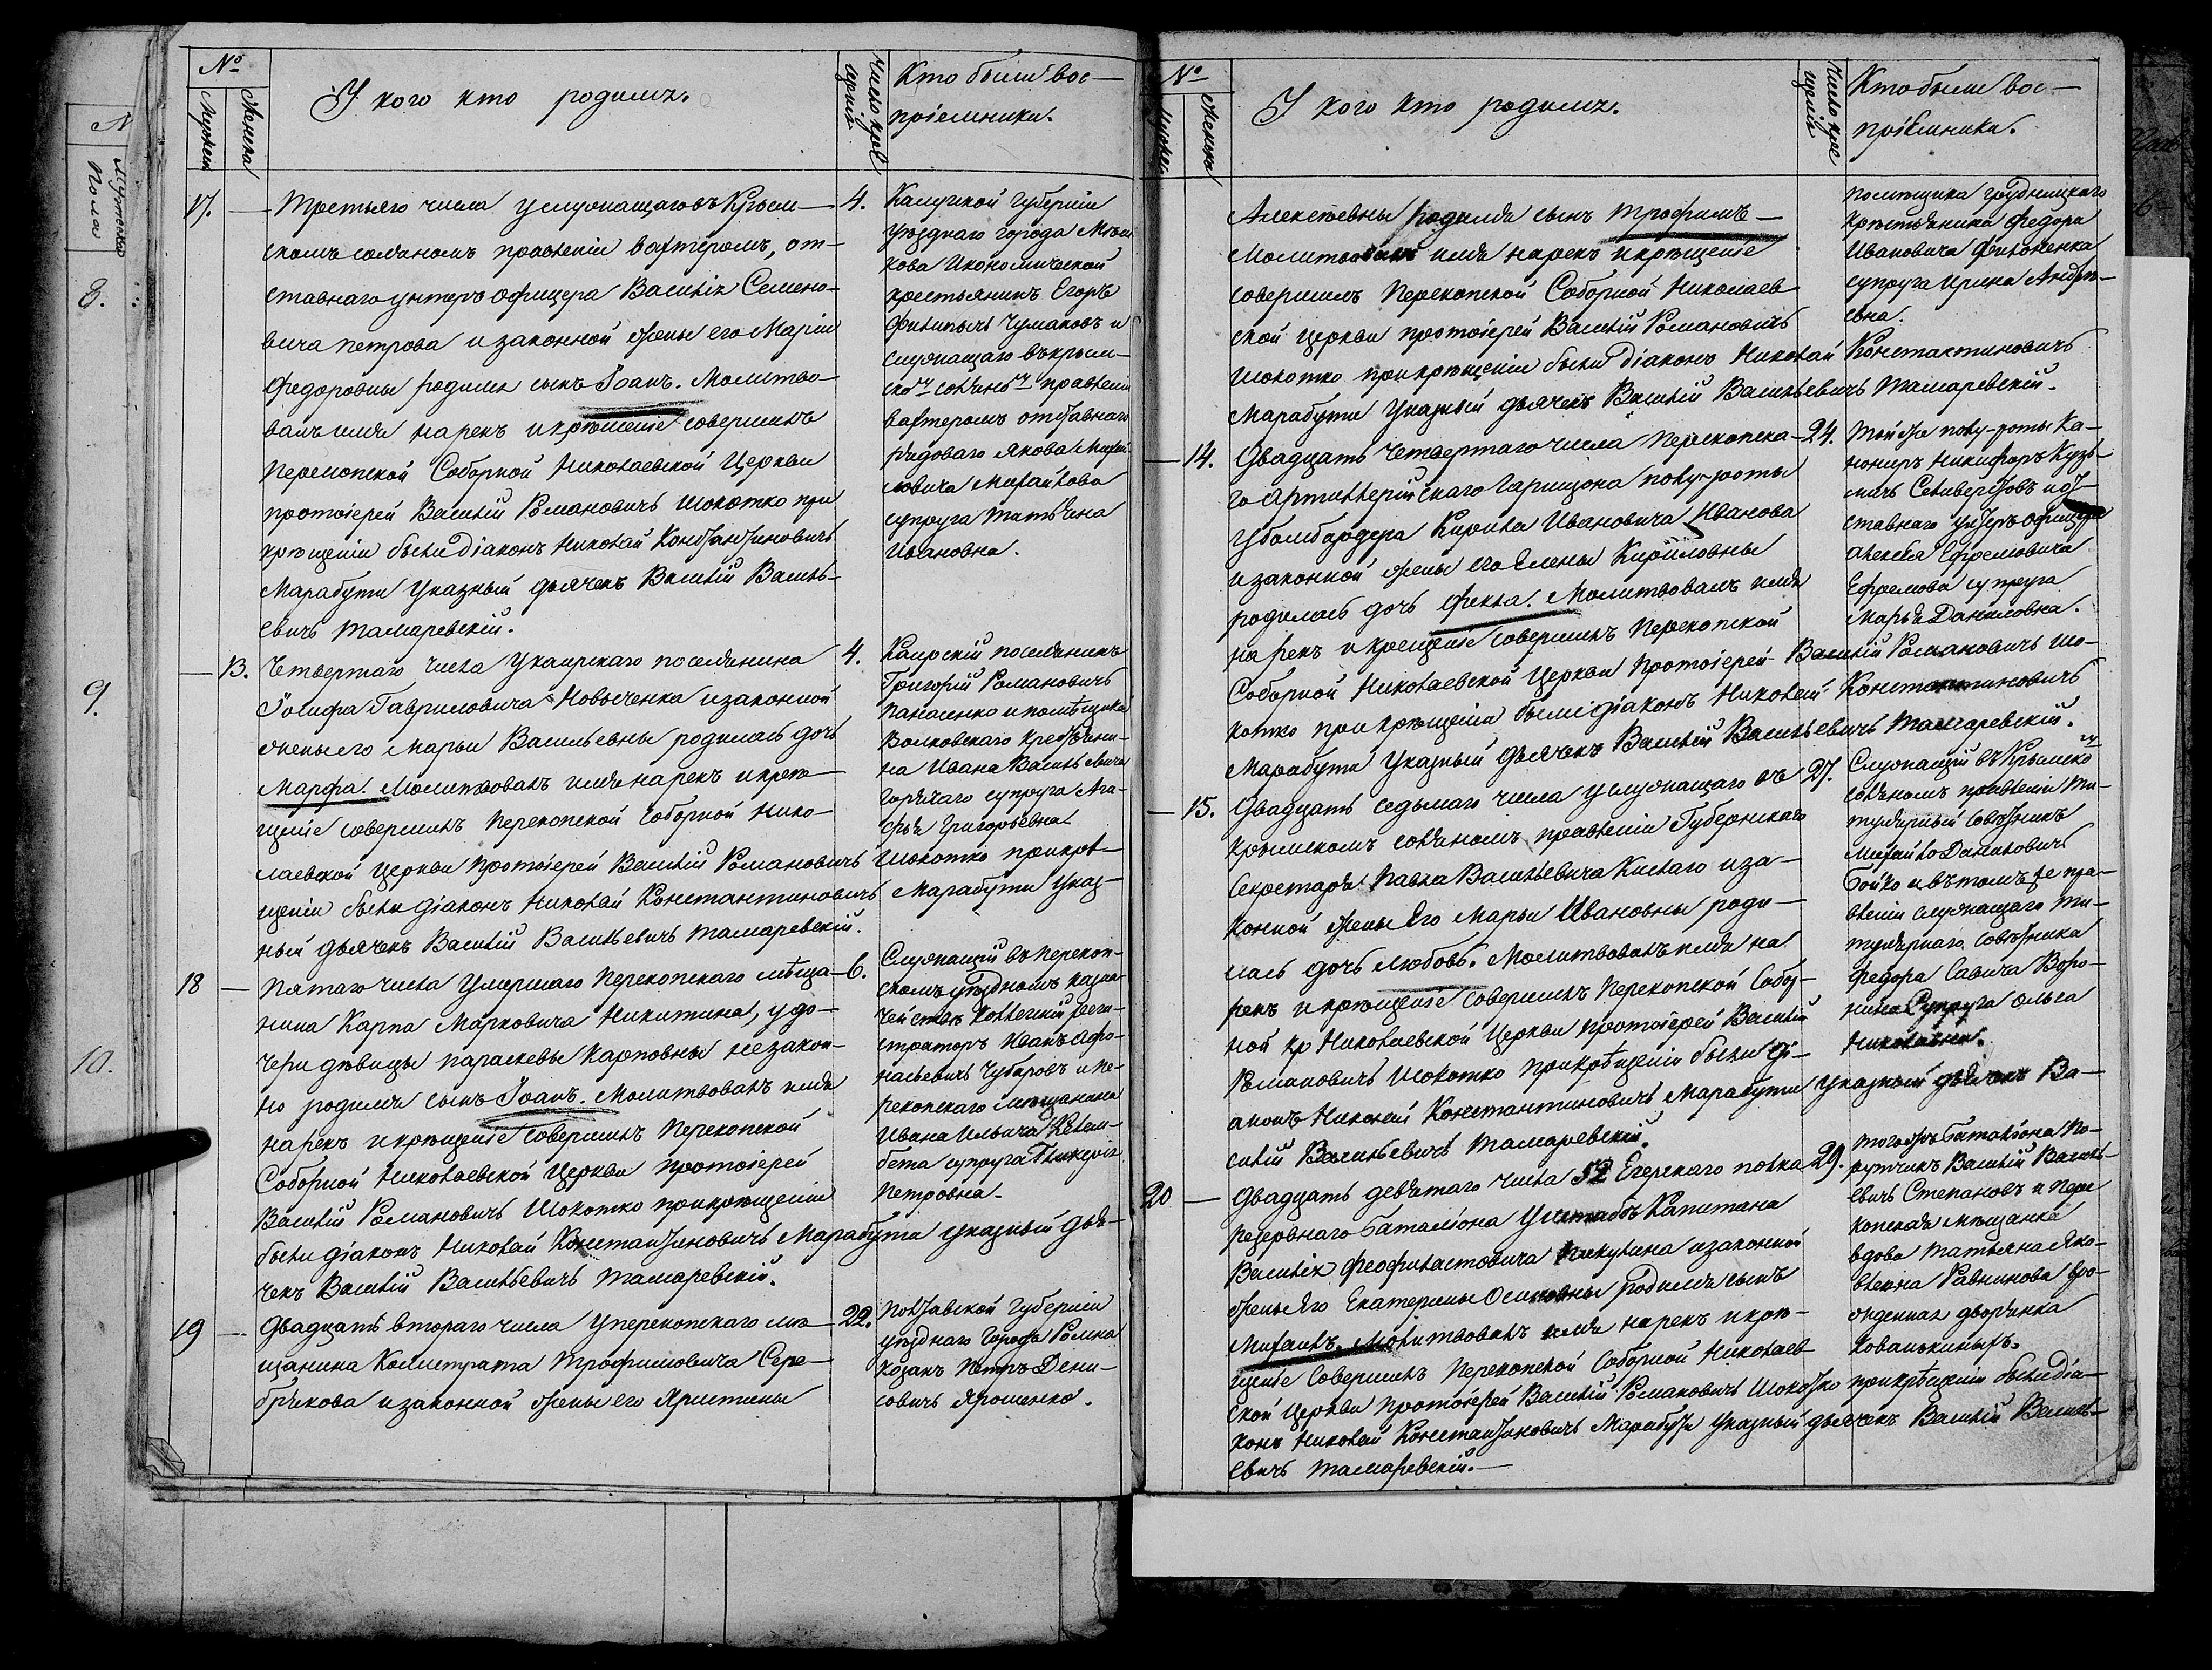 №
Мужеск
Женска
У кого кто родился.
Число крещенія
Кто были вос-
пріемники.
17.
Третьяго числа у служащаго въ Крым-
скомъ соляномъ правленіи вахтеромъ, от-
ставнаго унтеръ офицера Василія Семено-
вича Петрова и законной жены его Маріи
Федоровны родился сынъ Іоанъ. Молитво-
валъ имя нарекъ и крѣщеніе совершилъ
Перекопской Соборной Николаевской Церкви
протоіерей Василій Романовичъ Шокотко при
крѣщеніи были діаконъ Николай Константиновичъ
Марабути Указный дьячекъ Василій Василь-
евичъ Тамаревскій.
4.
Калужской Губерніи
уѣзднаго города
Икономической
крестьянинъ Егоръ
Филипычъ Чумаковъ и
служащаго въ Крым-
скомъ солянымъ правленіи
вахтеромъ отставнаго
рядоваго Якова
Михайлова
супруга Татьяна
Ивановна.
13.
Четвертаго числа У Каирскаго поселянина
Іосифа Гавриловича Новыченка и законной
жены его Марьи Васильевны родилась дочь
Марфа. Молитвовалъ имя нарекъ и крѣ-
щеніе совершилъ Перекопской Соборной Нико-
лаевской Церкви протоіерей Василій Романовичъ Шокотко при крѣ-
щеніи были діаконъ Николай Константиновичъ Марабути Указ-
ный дьячекъ Василій Васильевичъ Тамаревскій.
4.
Каирскій поселянинъ
Григорій Романовичъ
Панасенко и помѣщика
Волковскаго крестьяни-
на Ивана Васильевича
Горячаго супруга Ага-
фья Григорьевна
18
Пятаго числа Умершаго Перекопскаго мѣща-
нина Карпа Марковича Никитина, у до-
чери дѣвицы Параскевы Карповны незакон-
но родился сынъ Іоанъ. Молитвовалъ имя
нарекъ и крѣщеніе совершилъ Перекопской
Соборной Николаевской Церкви протоіерей
Василій Романовичъ Шокотко при крѣщеніи
были діаконъ Николай Константиновичъ Марабути Указный дья-
чекъ Василій Васильевичъ Тамаревскій.
6.
Служащій въ Перекоп-
скомъ уѣздномъ казна-
чействѣ Коллежскій реги-
страторъ Иванъ Афо-
насьевичъ Чубаровъ и Пе-
рекопскаго мѣщанина
Ивана Ильича
супруга Гликерія
Петровна.
19
Двадцать втораго числа У Перекопскаго мѣ-
щанина Калистрата Трофимовича Сере-
брякова и законной жены его Христины
22.
Полтавской Губерніи
уѣзднаго Города Ромна
Козакъ Петръ Дени-
совичъ Ярошенко.
№
Мужес
Женска
У кого кто родился.
Число крещенія
Кто были вос-
пріемники.
Алексѣевны родился сынъ Трофимъ
Молитвовалъ имя нарекъ и крѣщеніе
совершилъ Перекопской Соборной Николаев-
ской церкви протоіерей Василій Романовичъ
Шокотко при крѣщеніи были діаконъ Николай Константиновичъ
Марабути Указный дьячекъ Василій Васильевичъ Тамаревскій.
помѣщика
Крѣстьянина Федора
Ивановича
супруга Ирина Андрѣ-
евна.
14.
Двадцать четвертаго числа Перекопска-
го Артиллерійскаго Гарнизона полу-роты
У бомбардера Кирила Ивановича Иванова
и законной жены его Елены Кириловны
родилась дочь Фекла. Молитвовалъ имя
нарекъ и крещеніе совершилъ Перекопской
Соборной Николаевской Церкви протоіерей Василій Романовичъ Шо-
котко при крѣщеніи были діаконъ Николай Константиновичъ
Марабути Указный дьячекъ Василій Васильевичъ Тамаревскій.
24.
Той же полу-роты Ка-
нониръ Никифоръ Кузь-
мичъ Селиверстовъ и от-
ставнаго унтеръ офицера
Алексѣя Ефремовича
Ефремова супруга
Марья Даниловна.
15.
Двадцать седьмаго числа у служащаго въ
Крымскомъ соляномъ правленіи Губернскаго
Секретаря Павла Васильевича Кислаго и за-
конной жены его Марьи Ивановны роди-
лась дочь Любовь. Молитвовалъ имя на-
рекъ и крѣщеніе совершилъ Перекопской Собор-
ной Николаевской Церкви протоіерей Василій
Романовичъ Шокотко при крѣщеніи были ді-
аконъ Николай Константиновичъ Марабути Указный дьячекъ Ва-
силій Васильевичъ Тамаревскій.
27.
Служащій въ Крымско
соляномъ правленіи Ти-
тулярный Совѣтникъ
Михайло Даниловичъ
Бойко и въ томъ же пра-
вленіи служащаго Ти-
тулярнаго Совѣтника
Федора Савича Воро-
нина Супруга Ольга
Николаевна.
20
Двадцать девятаго числа 52 Егерскаго полка
резервнаго баталіона У штабъ Капитана
Василія Феофилактовича Пикулина и законной
жены его Екатерины Осиповны родился сынъ
Михаилъ. Молитвовалъ имя нарекъ и крѣ-
щеніе Совершилъ Перекопской Соборной Николаев-
ской Церкви протоіерей Василій Романовичъ Шокотко при крѣщеніи были діа-
конъ Николай Константиновичъ Марабути Указный дьячекъ Василій Василь-
евичъ Тамаревскій.
29.
Того же баталіона По-
ручикъ Василій Василь-
евичъ Степановъ и Пере-
копская мѣщанка
вдова Татьяна Яко-
влевна Равнинова
дворянка
Мужеска
пола
8.
9.
10.